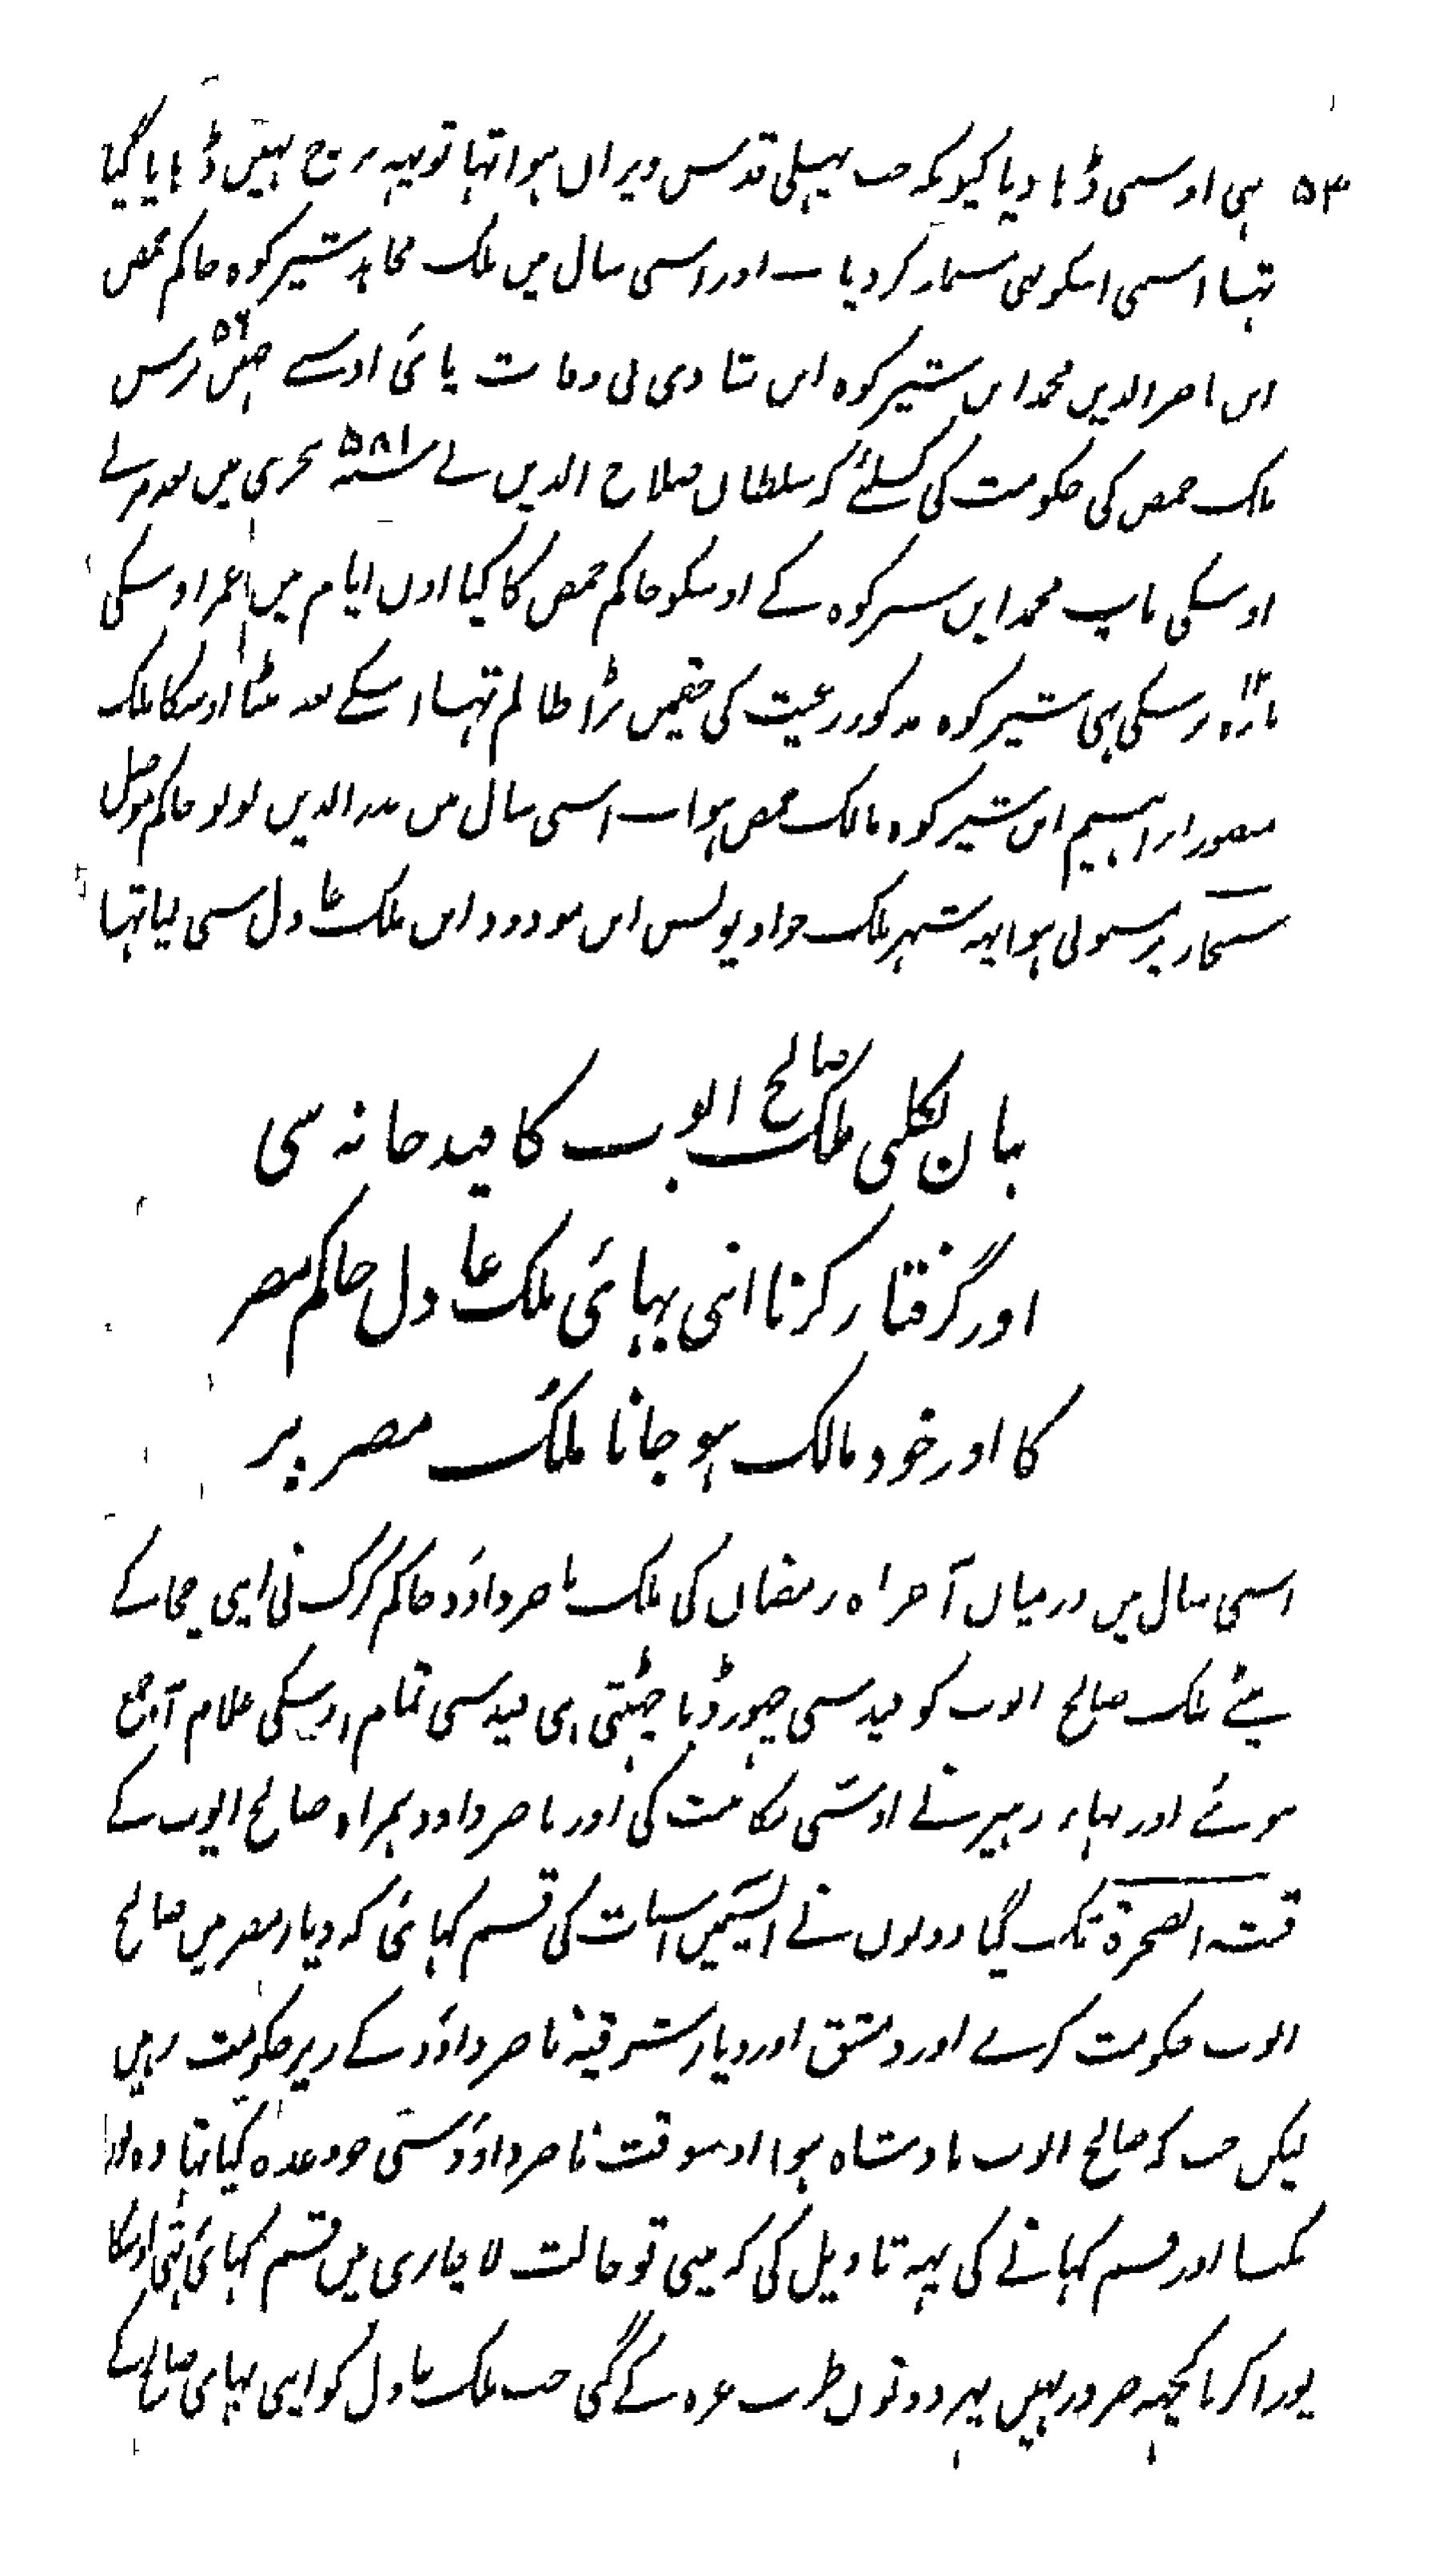 ۵۳ بهی اوسی ڈہا دیا کیونکہ جب پہلی قدس ویراں ہوا تہا تو یہہ برج نہیں ڈہایا گیا
تہا اسی اسکو بہی مسمار کر دیا ــ اور اسی سال میں ملک مجاہد شیرکوہ حاکم حمص
ابن ناصر الدین محمد ابن شیرکوہ ابن شادی نی وفات پائی اوسے چہپن ۵۶ برس
ملک حمص کی حکومت کی کسلئے کہ سلطان صلاح الدین نے سنہ ۵۸۱ ہجری میں بعد مرنے
اوسکی باپ محمد ابن شیرکوہ کے اوسکو حاکم حمص کا کیا اون ایام میں عمر اوسکی
بارہ ۱۲ برسکی تہی شیرکوہ مذکور رعیت کی حقمیں بڑا ظالم تہا اسکے بعد بیٹا اوسکا ملک
منصور ابراہیم ابن شیرکوہ مالک حمص ہوا ــ اسی سال میں بدر الدین لولو حاکم موصل
سنجار پر مستولی ہوا یہہ شہر ملک جواد یونس ابن مودود ابن ملک عادل سی لیا تہا
بیان نکلنی ملک صالح ایوب کا قید خانہ سی
اور گرفتار کرنا اپنی بہائی ملک عادل حاکم مصر
کا اور خود مالک ہو جانا ملک مصر پر
اسی سال میں درمیان آخر ماہ رمضان کی ملک ناصر داوٗد حاکم کرک نی اپنی چچا کے
بیٹے ملک صالح ایوب کو قید سی چہوڑ دیا چہٹتی ہی قید سی تمام اوسکی غلام آ جمع
ہوئے اور بہاء زہیر نے اوسنی مکاتبت کی اور ناصر داود ہمراہ صالح ایوب کے
قبۃ الصخرۃ تک گیا دونوں نے آپسمیں اسبات کی قسم کہائی کہ دیار مصر میں صالح
ایوب حکومت کرے اور دمشق اور دیار شرقیہ ناصر داوٗد کے زیر حکومت رہیں
لیکن جب کہ صالح ایوب بادشاہ ہوا اوسوقت ناصر داوٗد سی جو وعدہ کیا تہا وہ پورا
نکیا اور قسم کہانے کی یہہ تاویل کی کہ مینی تو حالت لاچاری میں قسم کہائی تہی اوسکا
پورا کرنا کچہہ ضرور نہیں پہر دونوں طرف غزہ کے گئی جب ملک عادل کو اپنی بہائی صالح کے